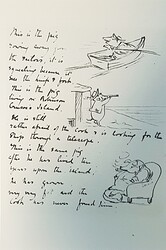 This is the pig
rowing away from
the sailors; it is
sometimes because it
sees the knife & fork
This is the pig
living on Robinson
Crusoe's island
He is still
rather afraid of the Cook & is looking for the
ship through a telescope.
This is the same pig
after he has lived ten
years upon the island,
he has grown
very very fat and the
Cook has never found him